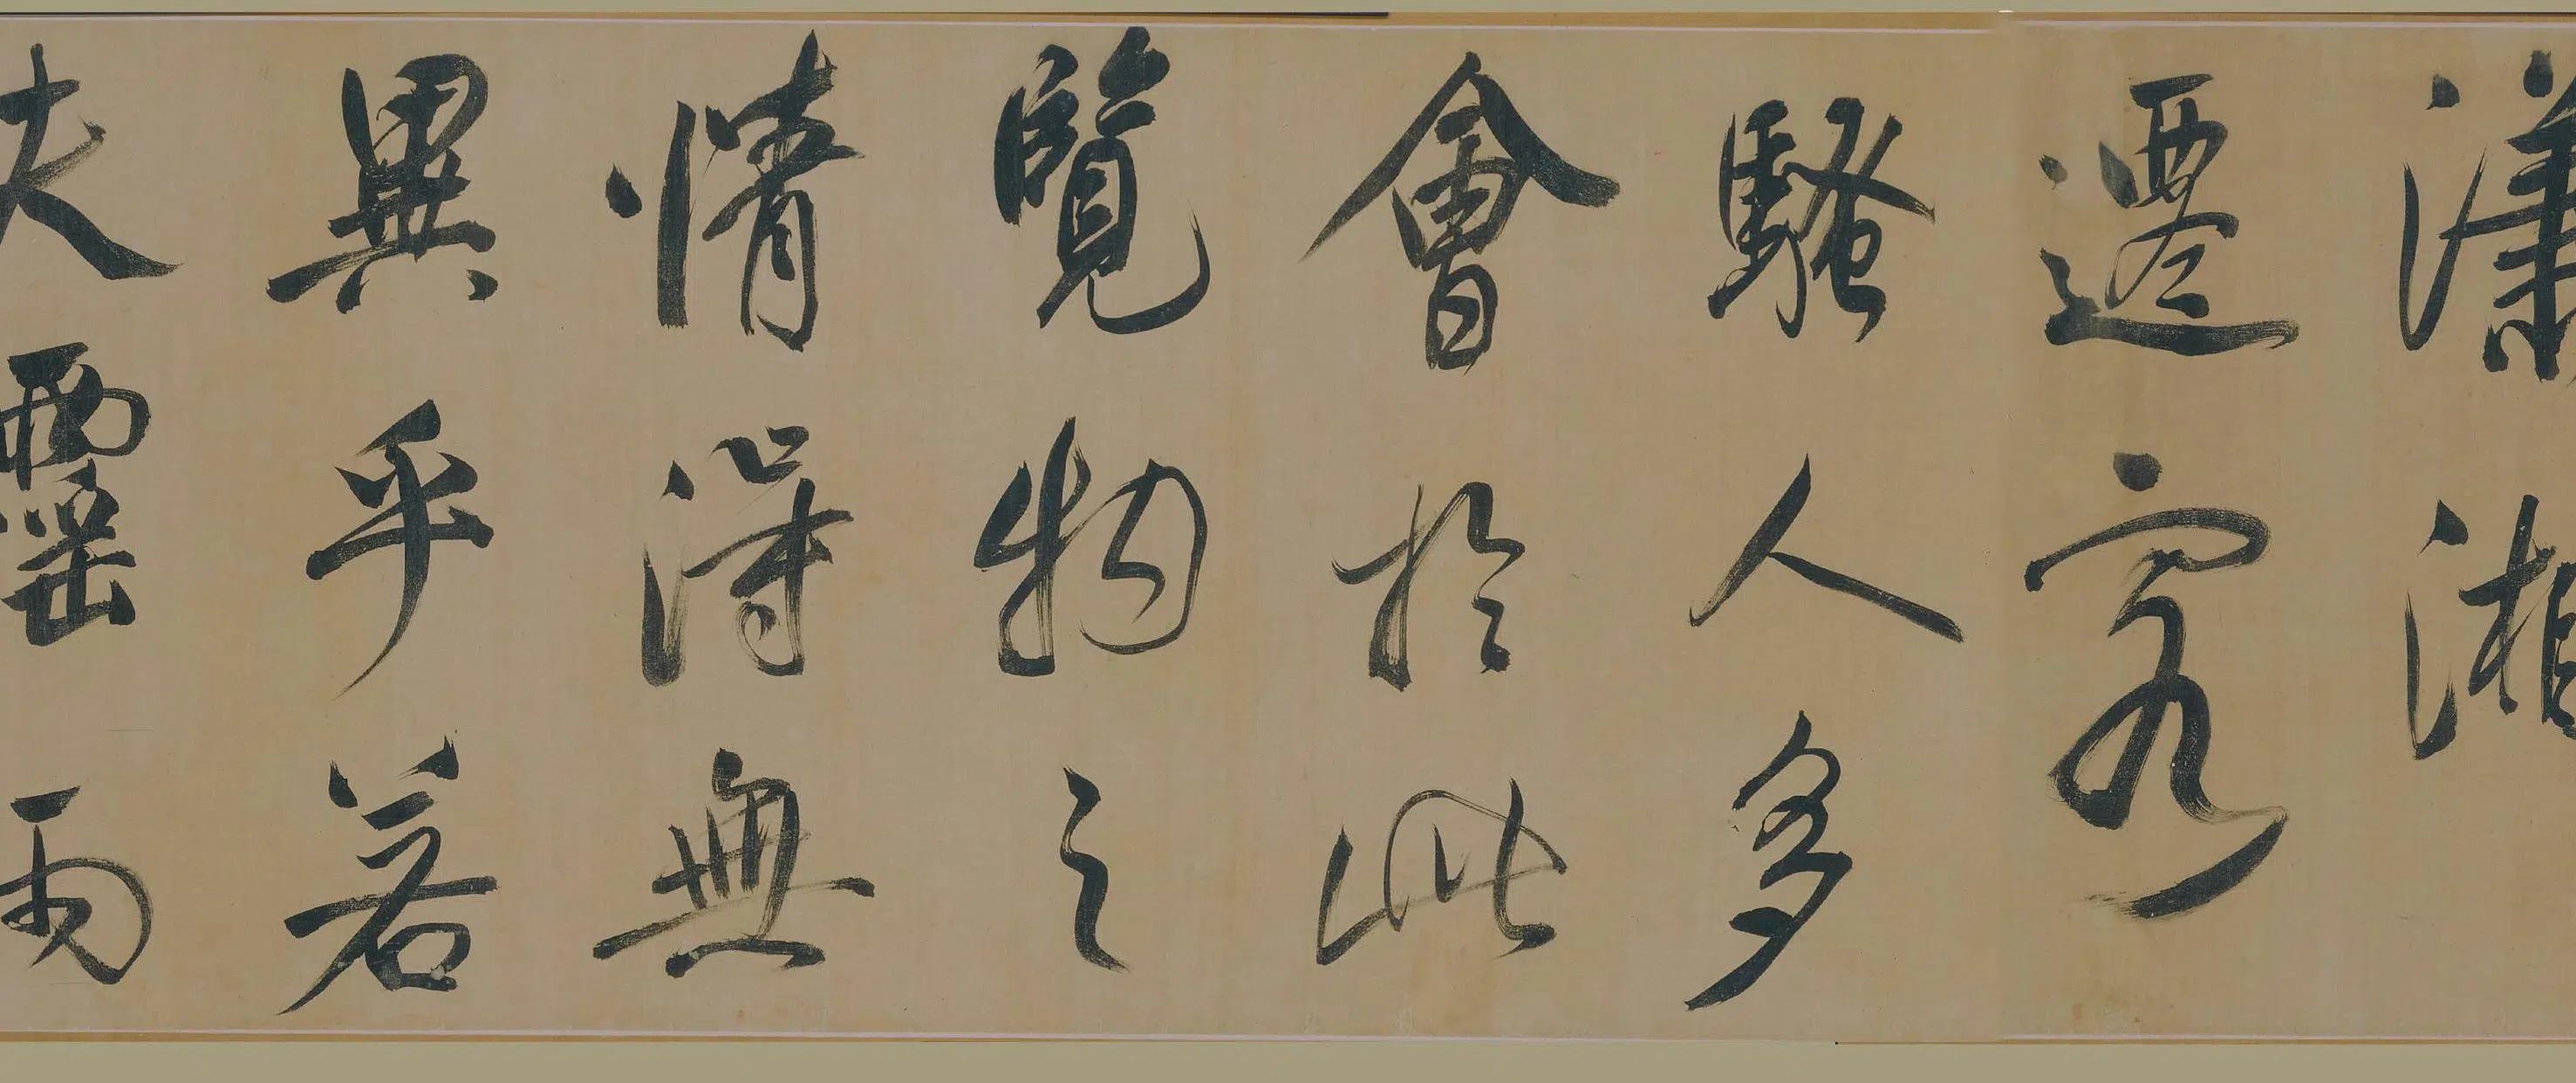 瀟湘
遷客
騷人多
會於此
覽物之
情得無
異乎若
夫霪雨